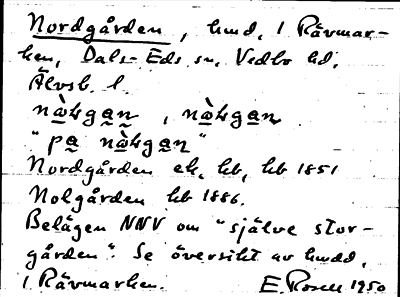 Nordgården, hmd. i Rävmar-
ken, Dals-Eds sn. Vedbo hd.
Älvsb. l.
Nordgården ek, hb, hb 1851
Nolgården hb 1886.
Belägen NNV om "själve stor-
gården". Se översikt av hmdd.
i Rävmarken. E. Rosell 1950